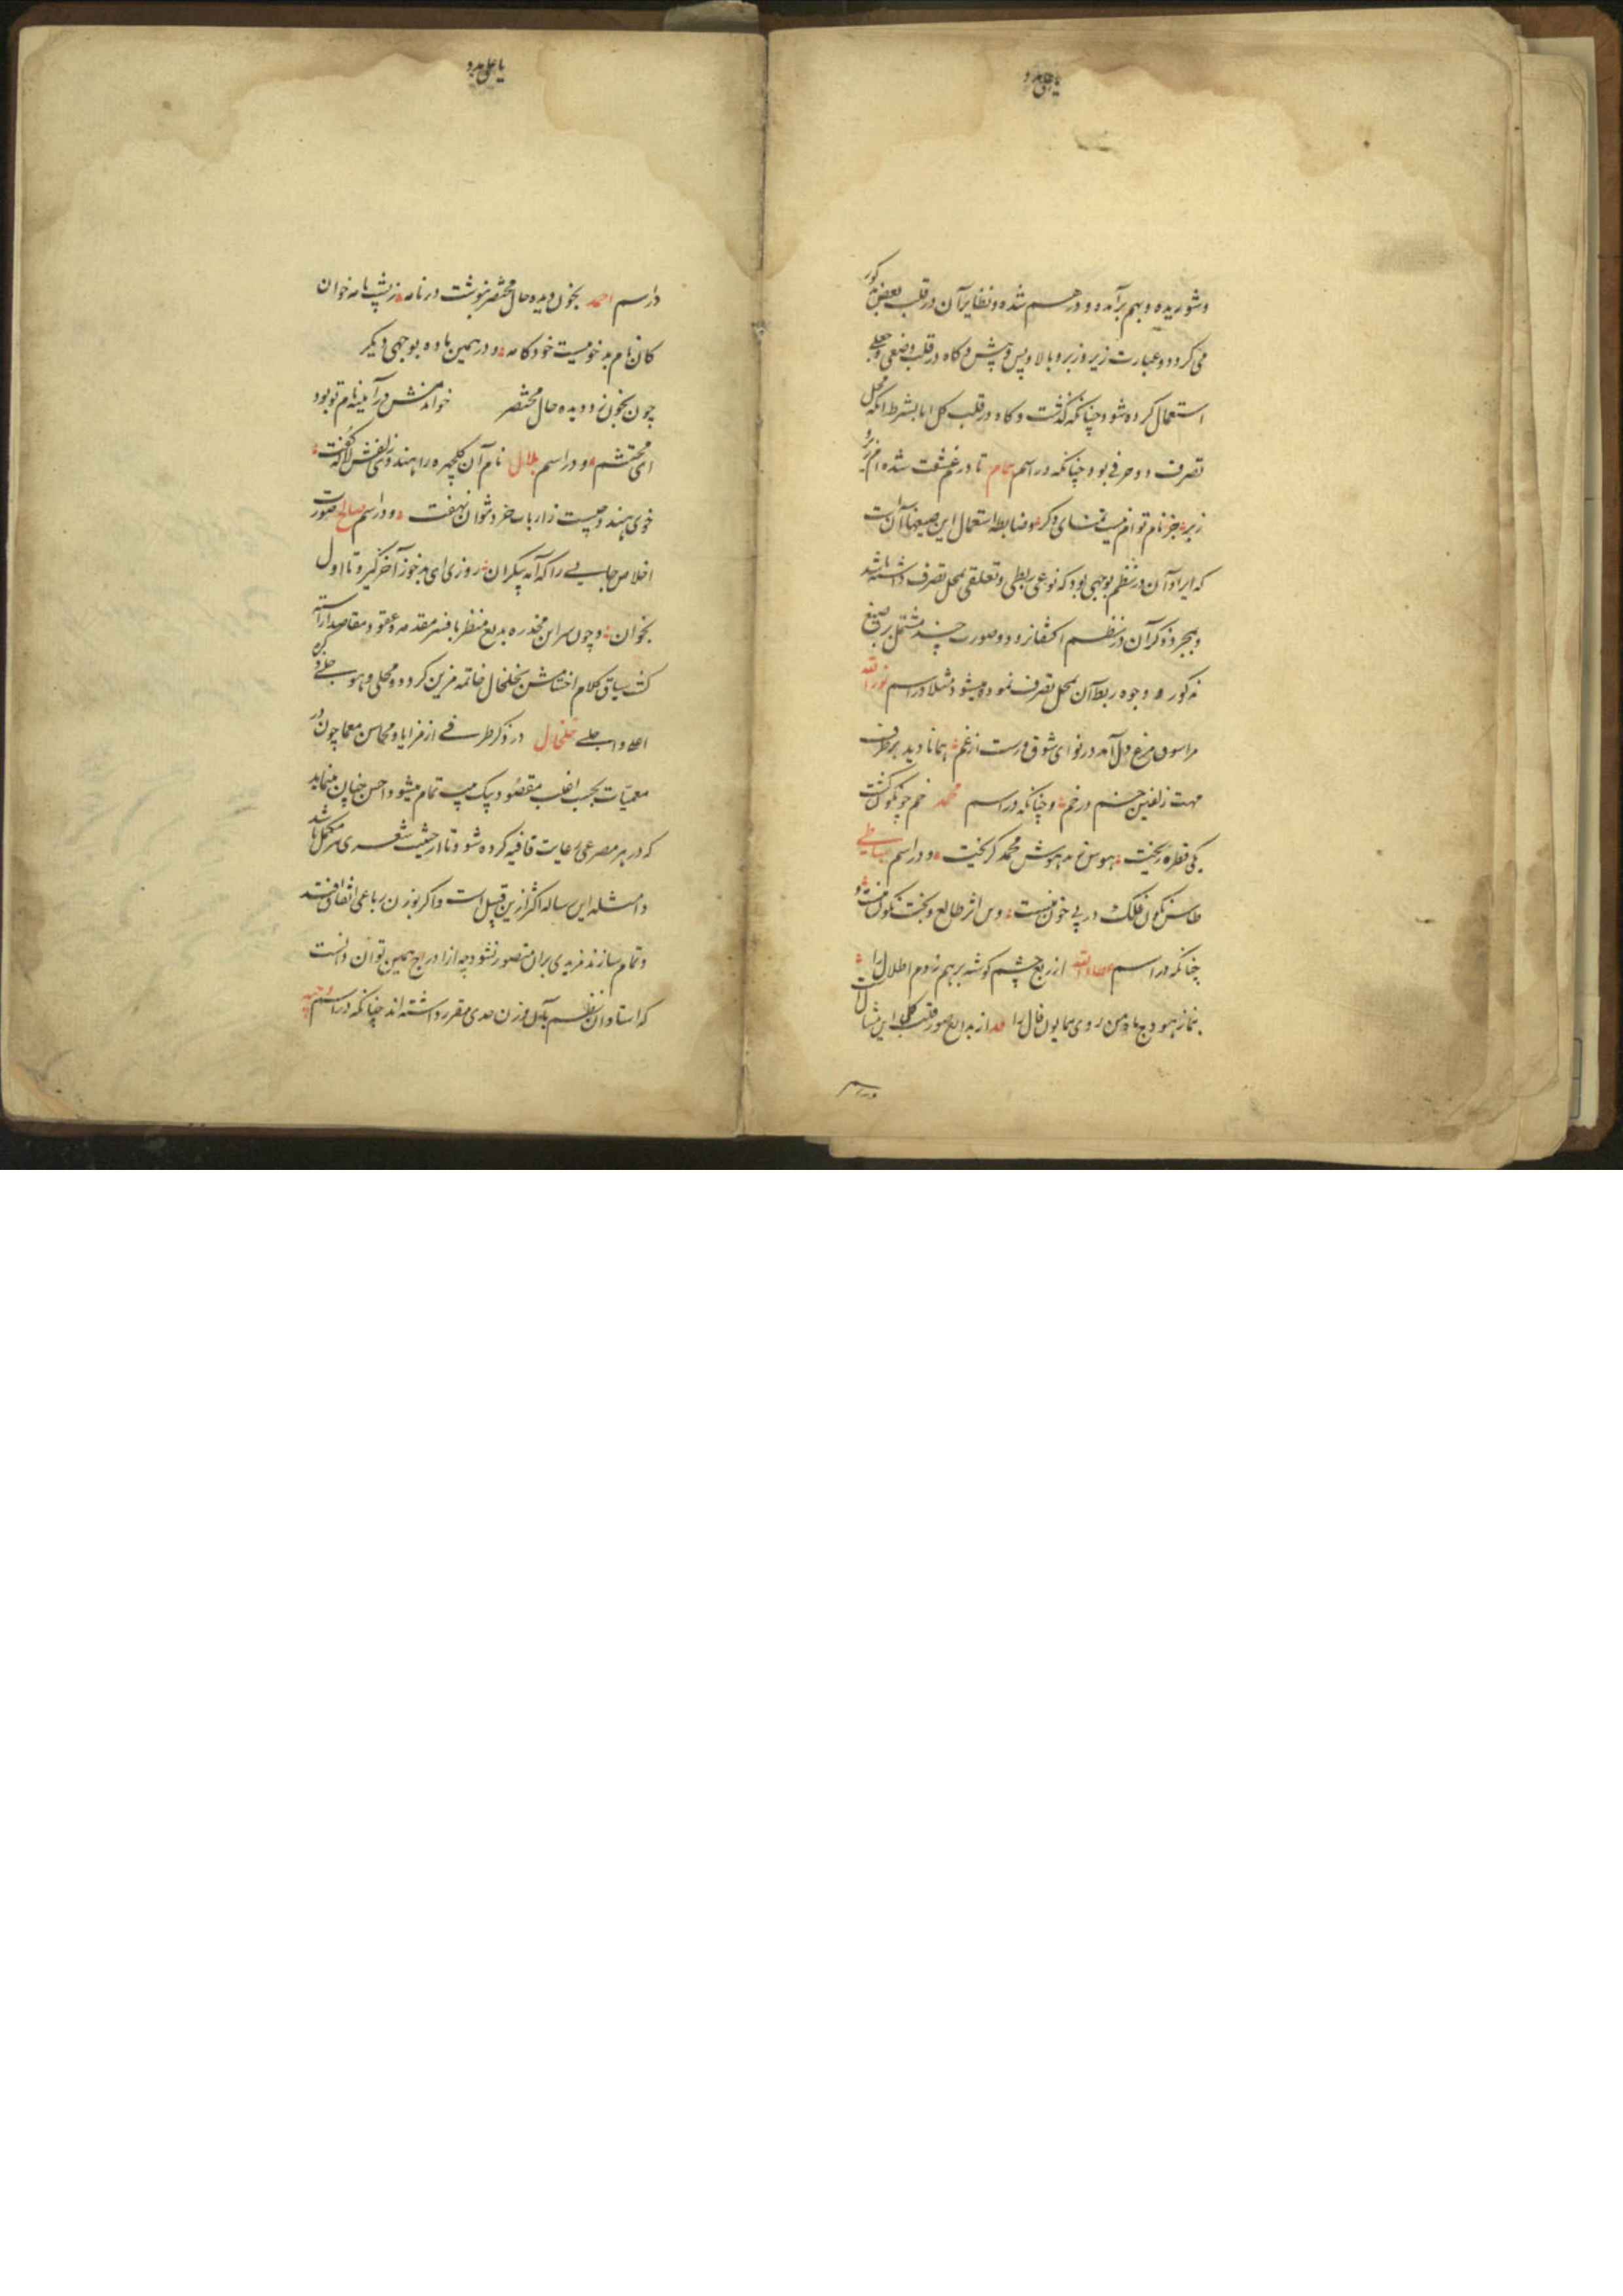 یا علی مدد
وشوریده و بهم برآمده و درهم شده و نظایر آن در قلب بعض مذکور
می کردد و عبارت زیر و زبر و بالا و پس و پیش و کاه در قلب وضعی و جعلی
استعمال کرده شود چنانکه کذشت و کاه در قلب کل اما بشرط آنکه محل
تصرف دو حرفی بود چنانکه در اسم تا در غم عشقت شده ام زیر و
زبر جز نام توام نیست تمنای دکر و ضابطه استعمال این صیغها آن است
که ایراد آن در نظم بوجهی بود که نوعی ربطی و تعلقی بمحل تصرف داشته باشد
و بمجرد ذکر آن در نظم اکتفا نرود و صورت چند مشتمل بر صیغ
مذکوره و وجوه ربط آن بمحل تصرف نموده میشود مثلا در اسم نورالله
مرا سوی مرغ دل آمد در نوای شوق رست از غم همانا دید بر طرف
مهت زلفین خم در خم و چنانکه در اسم محمد خم چو نکون کشت
یکی قطره ریخت هوس مدهوش محمد کریخت و در اسم
طاس نکون فلک در پی خون منست وین اثر طالع و بخت نکون منست و
چنانکه در اسم عطاءالله از ربع چشم کوشه برهم زدم اطلال را
بنماز هودج ماه من روی همایون فال را از بدایع صور قلب کل این مثال است
در اسم
یا علی مدد
در اسم احمد بخون دیده حال محتضر بنوشت در نامه ز پشت نامه خوان
کان نام مه خودکامه و در همین ماده بوجهی دیکر
چون بخون دو دیده حال محتضر خواندمش در آینه نام تو بود
ای محتشم و در اسم بلال نام آن کلچهره را هندوی زلفش لاله کفت
خوی هندو چیست ز ارباب خرد نتوان نهفت و در اسم صالح صورت
اخلاص جایی را که آمه پیکران روزی ای مه خوز آخر کیر و تا اول
بخوان و چون سر این مخدره بدیع منظر بافسر مقدمه و عقود مقاصد آراسته
کشت سیاق کلام اختتامش بخلخال خاتمه مزین کردد و محلی و هو
اعلا و اجلی خلخال در ذکر طرفی از مزایا و محاسن معما چون در
معمیات بحسب اغلب مقصود بیک بیت تمام میشود احسن چنان مینماید
که در هر مصرعی رعایت قافیه کرده شود تا از حیثیت شعری مکمل باشد
و امثله این رساله اکثر ازین قبیل است و اکر بوزن رباعی اتفاق افتد
و تمام سازند مزیدی بران متصور نشود چه از ادراج همین توان دانست
که استادان نظم بآن وزن حدی مقرر داشته اند چنانکه در اسم